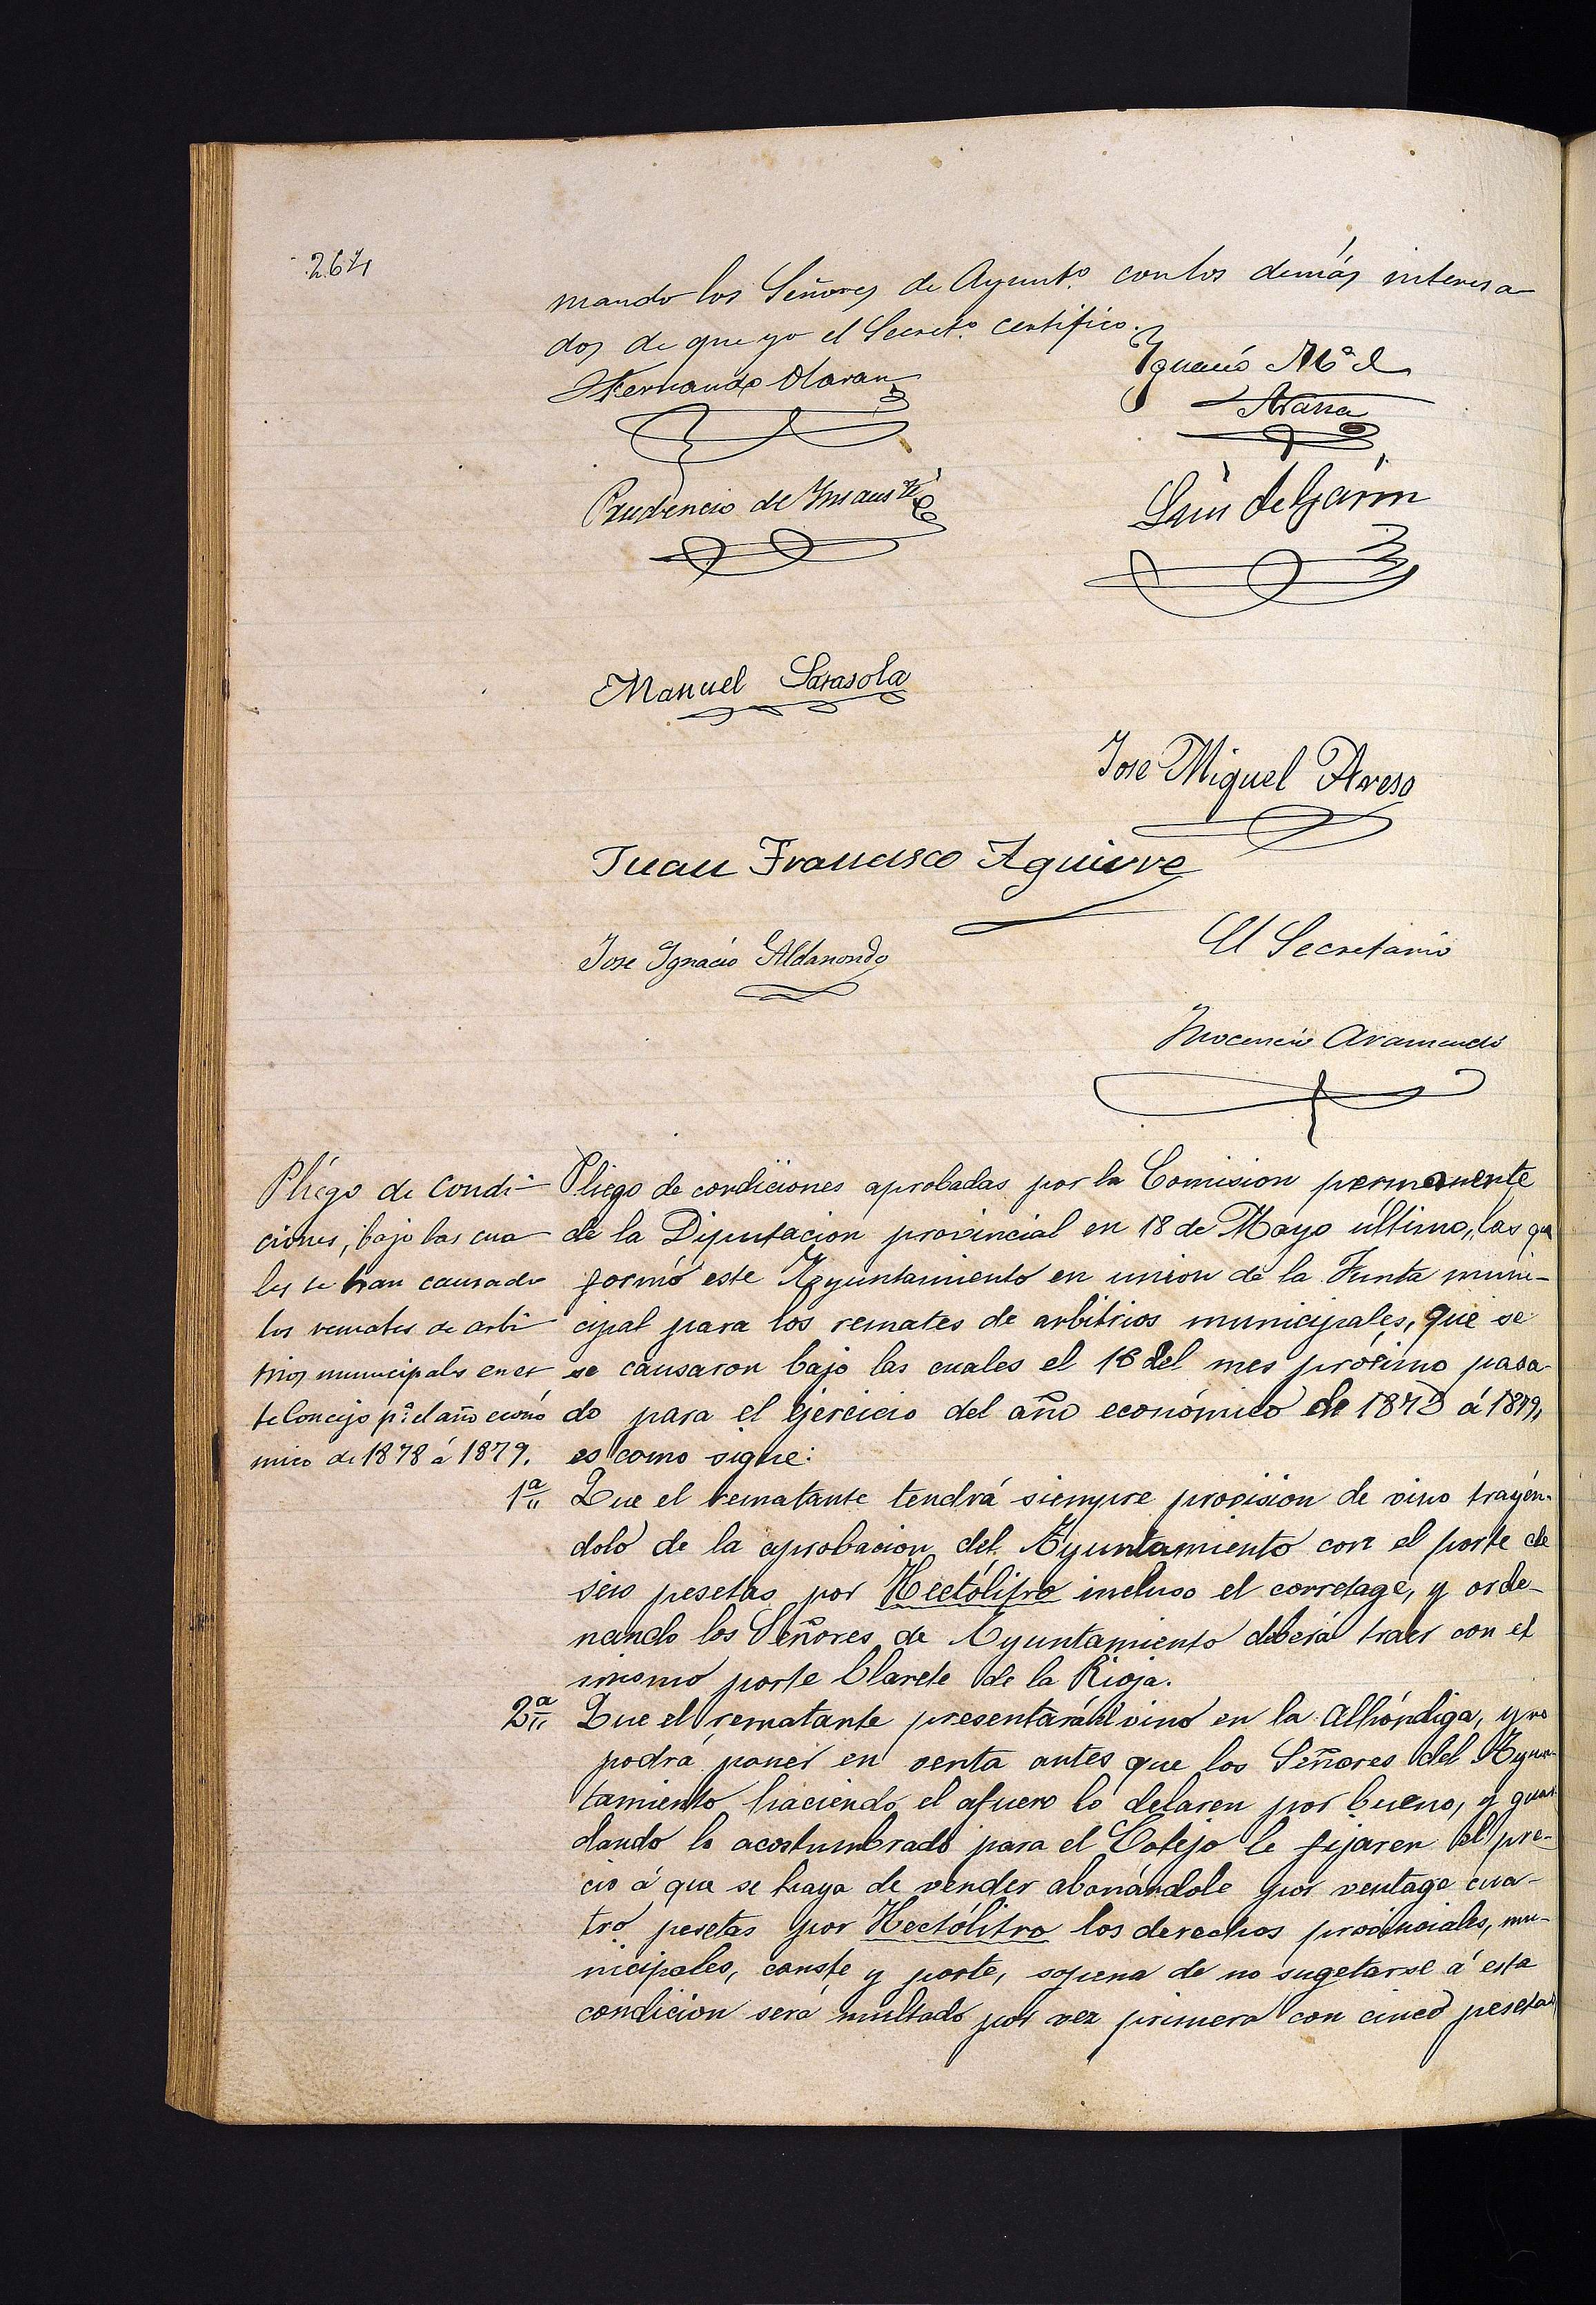 264
mando los Señores de Ayunt.º con los demás interesa
dos de que yo el Secret.º certifico.
Fernando Olaran
Ignacio Mª d
Arana
Prudencio de Insausti
Luis de Garin
Manuel Sarasola
Jose Miguel Areso
Juan Francisco Aguirre
El Secretario
Jose Ignacio Aldanondo
Inocencio Aramendi
Pliego de Condi-
ciones, bajo las cua
les se han causado
los remates de arbi
trios municipals en es
te Concejo pª el año econó
mico de 1878 á 1879.
Pliego de condiciones aprobadas por la Comision permanente
de la Diputacion provincial en 18 de Mayo último, las que
formó este Ayuntamiento en union de la Junta muni-
cipal para los remates de arbitrios municipales, que se
se causaron bajo las cuales el 16 del mes próximo pasa-
do para el ejercicio del año económico de 1878 á 1879,
es como sigue:
1ª Que el rematante tendrá siempre provision de vino trayén-
dolo de la aprobacion del Ayuntamiento con el porte de
seis pesetas por Hectólitro incluso el corretage, y orde-
nando los Señores de Ayuntamiento deberá traer con el
mismo porte Clarete de la Rioja.
2ª Que el rematante presentará el vino en la Alhóndiga, y no
podrá poner en venta antes que los Señores del Ayun-
tamiento haciendo el afuero lo delaren por bueno, y guar-
dando lo acostumbrado para el Cotejo le fijaren el pre-
cio á que se haya de vender abonándole por ventage cua-
tro pesetas por Hectólitro los derechos provinciales, mu-
nicipales, conste y porte, sopena de no sugetarse á esta
condicion será multado por vez primera con cinco pesetas